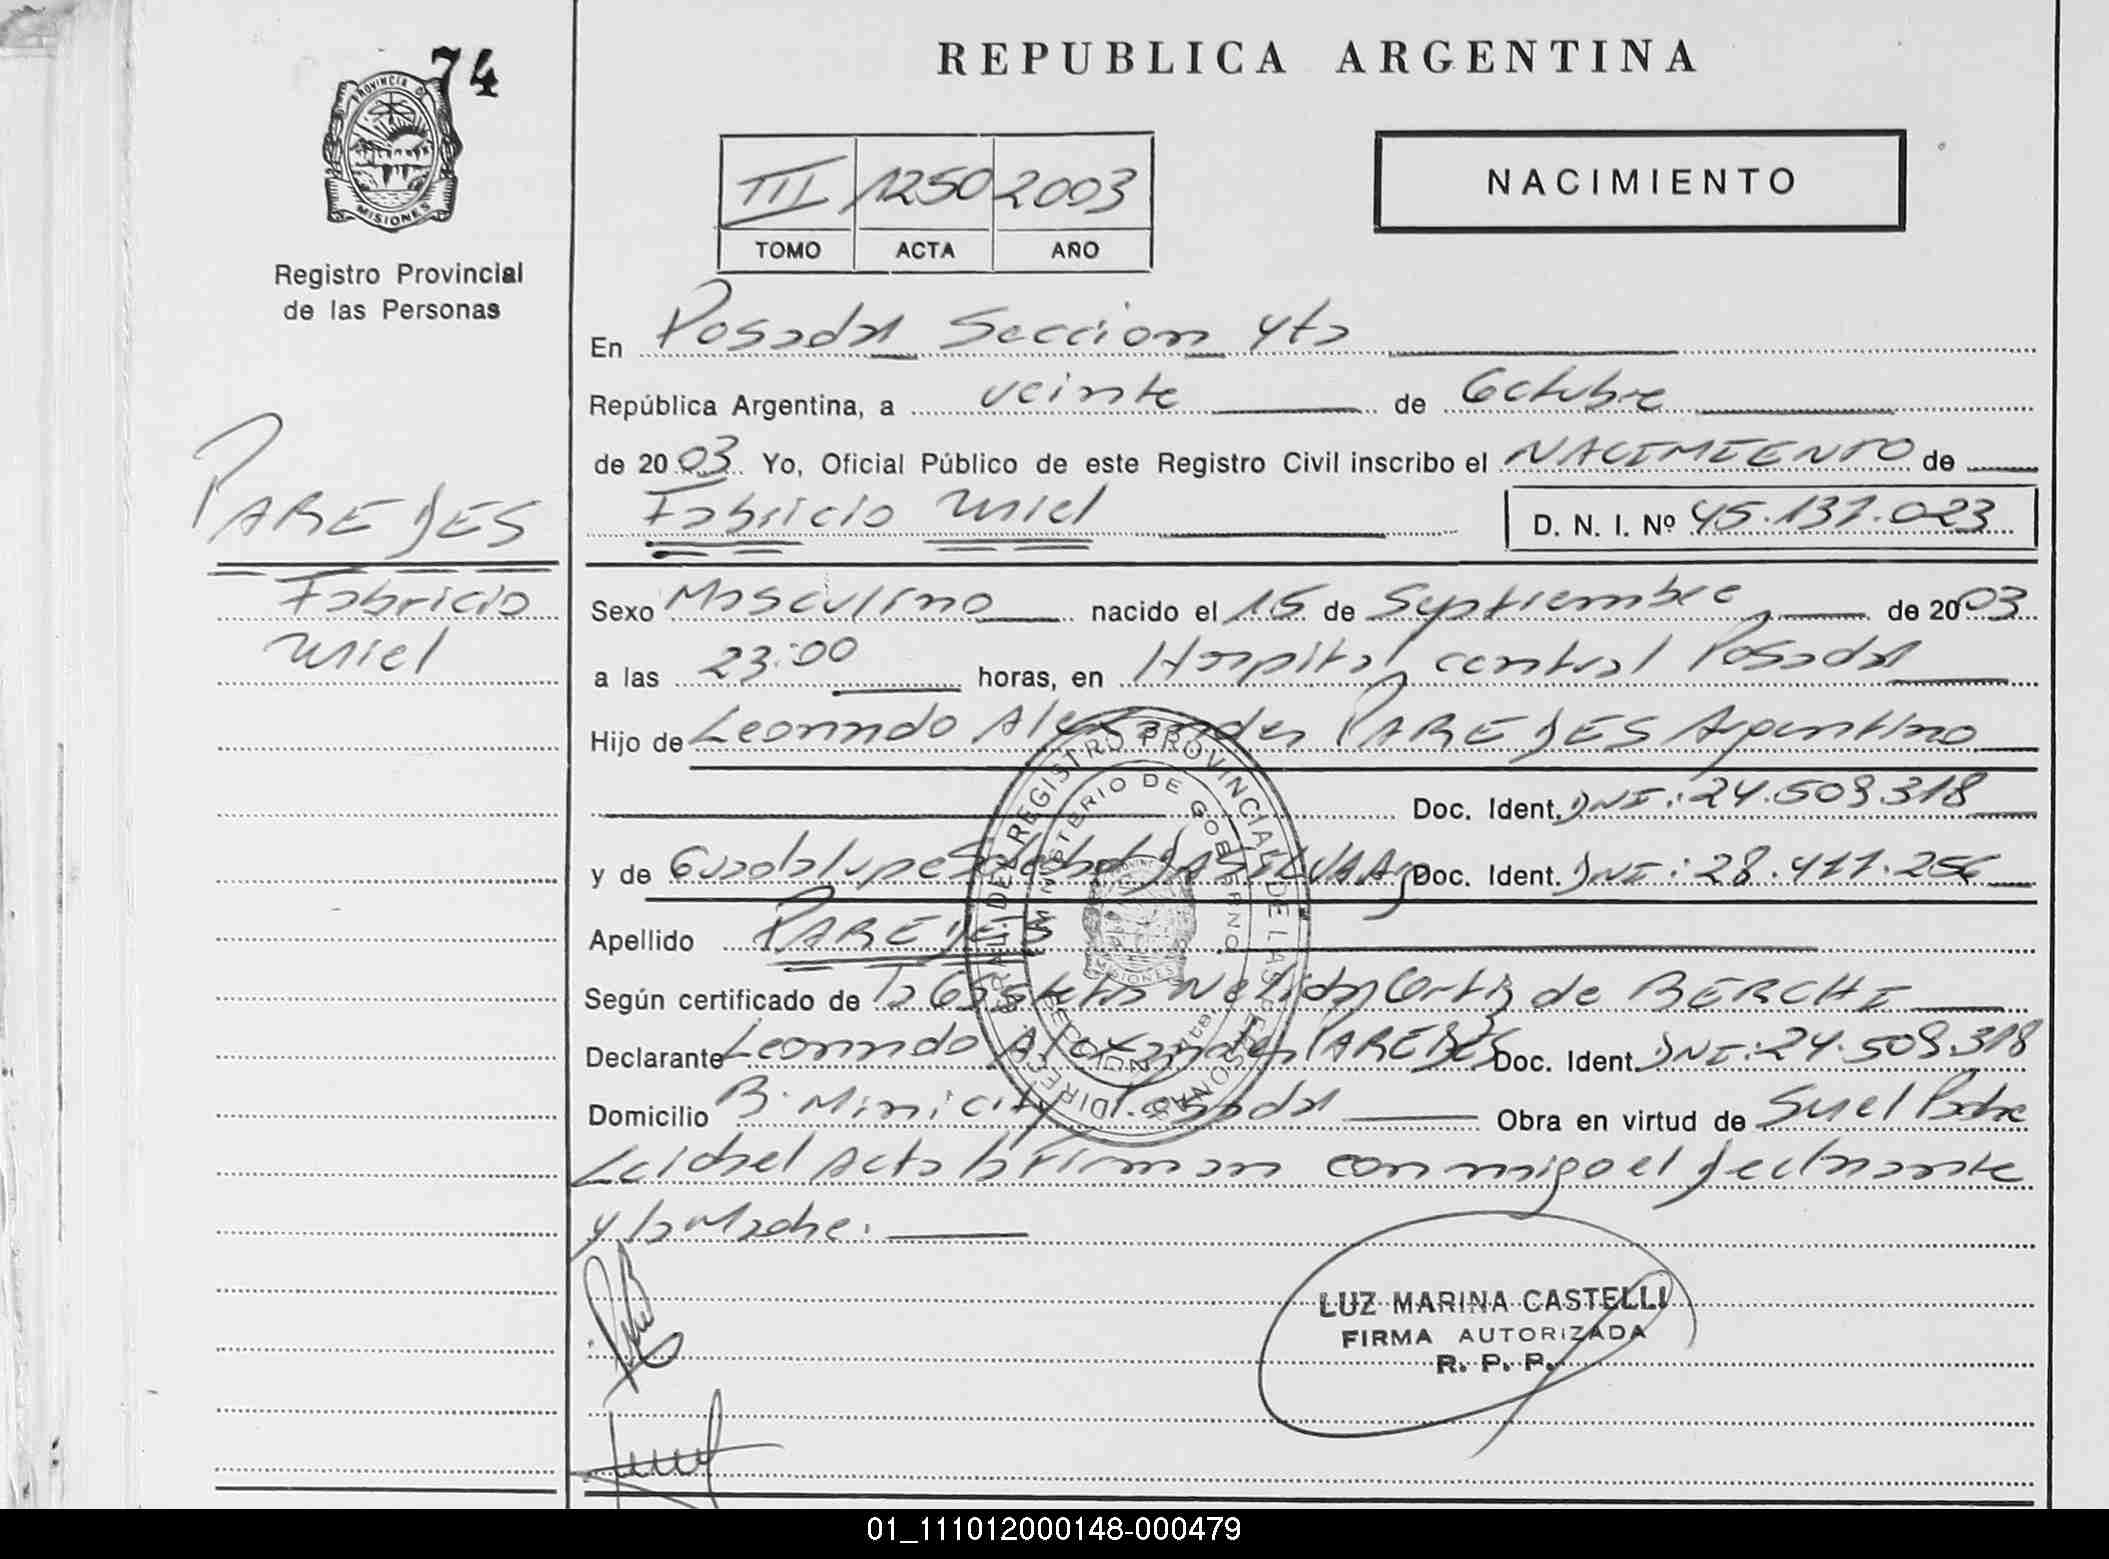 REPUBLICA ARGENTINA
74
PROVINCIA DE
MISIONES
Registro Provincial
de las Personas
NACIMIENTO
III 1250 2003
TOMO ACTA AÑO
En Posadas Seccion 4ta
República Argentina, a veinte de Octubre
de 2003 Yo, Oficial Público de este Registro Civil inscribo el NACIMIENTO de
Fabricio Uriel D. N. I. Nº 45.137.023
PAREDES
Fabricio
Uriel
Sexo Masculino nacido el 15 de Septiembre de 2003
a las 23:00 horas, en Hospital central Posadas
Hijo de Leonardo Alexander PAREDES Argentino
Doc. Ident. DNI: 24.509.318
y de Guadalupe Soledad DA SILVA Arg Doc. Ident. DNI: 28.411.256
Apellido PAREDES
Según certificado de la Obstetra Nelida Ortiz de BERCHI
Declarante Leonardo Alexander PAREDES Doc. Ident. DNI: 24.509.318
Domicilio B. Mini city Posadas Obra en virtud de Ser el Padre
Leida el Acta la Firman conmigo el declarante
y la Madre.
DIRECC. GRAL. DEL REGISTRO PROVINCIAL DE LAS PERSONAS
MINISTERIO DE GOBIERNO
MISIONES
LUZ MARINA CASTELLI
FIRMA AUTORIZADA
R. P. P.
01_111012000148-000479